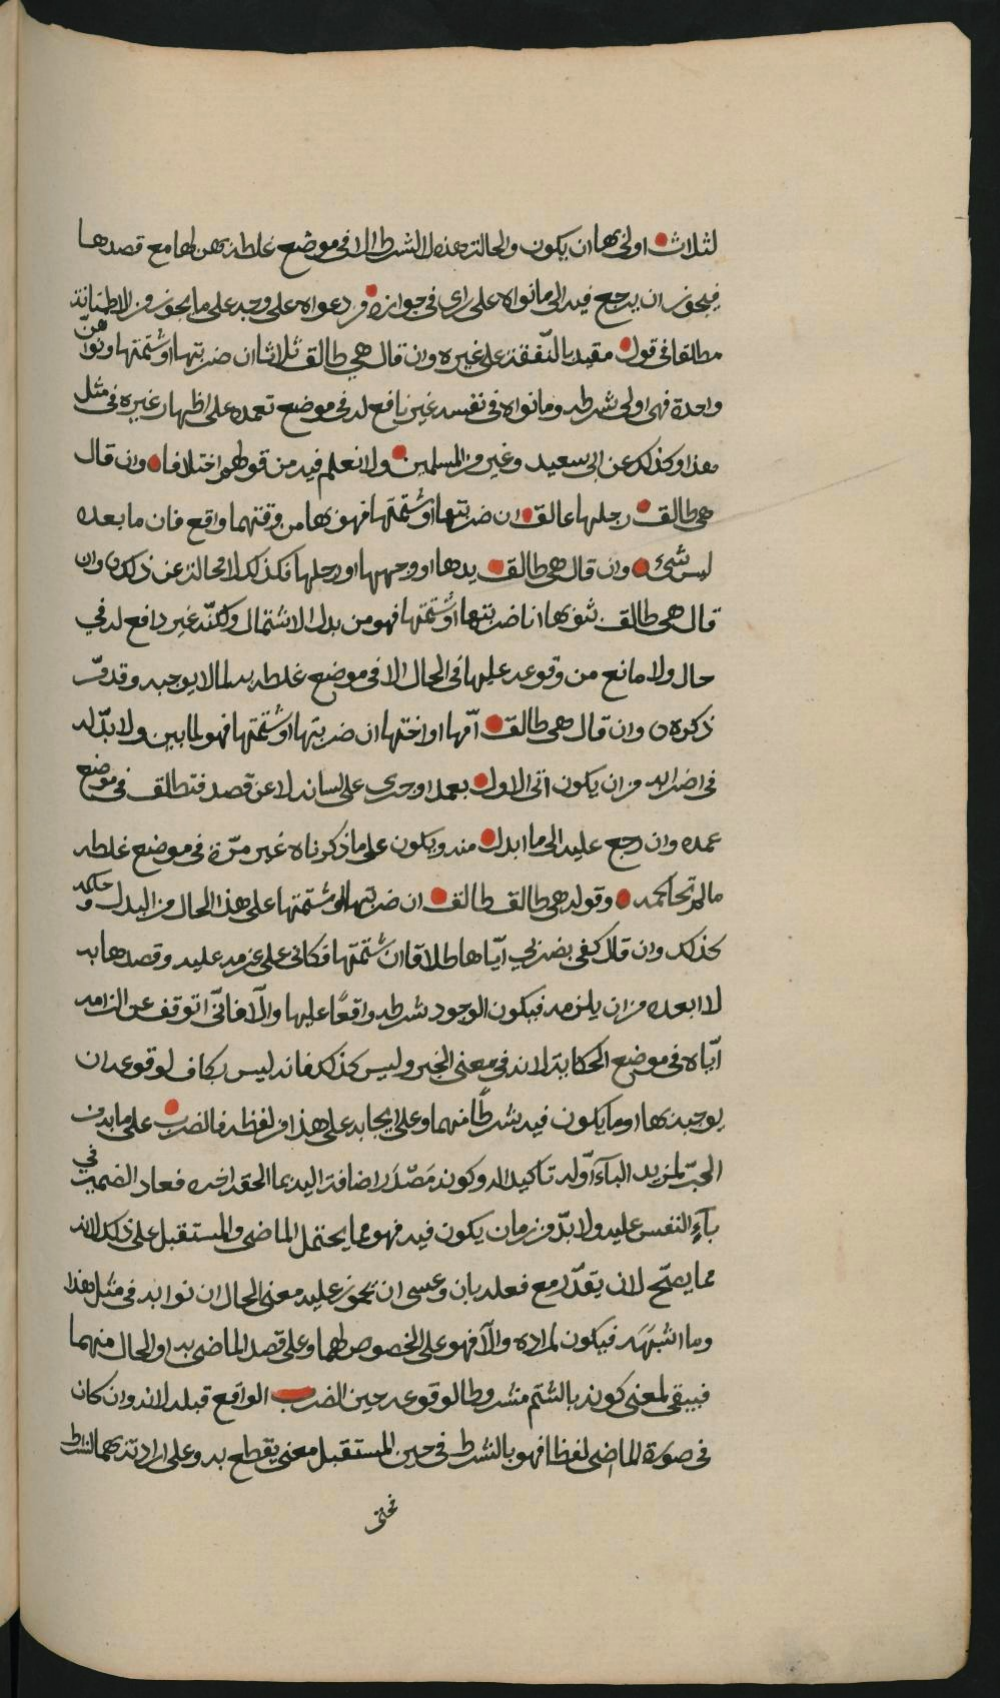 لثلاث اولى بها ان يكون والحالة هذه الشرط الا في موضع غلطه بهن لها مع قصدها
فيجوز ان يرجع فيه الى ما نواه على راى في جوازه ودعواه على وجه على ما يجوز من الاطمئانة
مطلقا في قول مقيد بالثقة على غيره وان قال هي طالق ثلاثا ان ضربتها او شتمتها ونواهن
واحدة فهى اولى بشرطه وما نواه في نفسه غير نافع له في موضع تعمده على اظهار غيره في مثل
هذا وكذلك عن ابى سعيد وغيره من المسلمين ولا نعلم فيه من قولهم اختلافا وان قال
هي طالق رجلها عالق ان ضربتها او شتمتها فهو بها من وقتهما واقع فان ما بعده
ليس شىء وان قال هي طالق يدها او وجهها او رجلها فكذلك لا محالة عن ذلك وان
قال هي طالق ثوبها انا ضربتها او شتمتها فهو من بدل الاشتمال ولكنه غير دافع له في
حال ولا مانع من وقوعه عليها في الحال الا في موضع غلطه بما لا يوجبه وقد مر
ذكره وان قال هي طالق امها او اختها ان ضربتها او شتمتها فهو لما بين ولا بد له
في اضرابه من ان يكون اتى الاول بعمد او جرى على لسانه لا عن قصد فتطلق في موضع
عمده وان رجع عليه الى ما ابدل منه ويكون على ما ذكرناه غير مرة في موضع غلطه
ما لم تحاكمه وقوله هي طالق طالق ان ضربتها او شتمتها على هذا الحال من البدل وحكمه
كذلك وان قال كفى بضربي اياها طلاقا ان شتمتها فكانى على عزمه عليه وقصدها به
لا ابعده من ان يلزمه فيكون الوجود شرطه واقعا عليها والا فانى اتوقف عن الزامه
اياه في موضع الحكاية لانه في معنى الخبر وليس كذلك فانه ليس بكاف لوقوعه ان
يوجبه بها او ما يكون فيه بشرط منهما وعلى ايجابه على هذا من لفظه فالضرب على ما به من
الجر لمزيد الباء اوله تاكيدا له وكونه مصدرا ضافة اليه بما الحقه اخره فعاد الضمير في
ياء النفس عليه ولا بد من زمان يكون فيه فهو مما يحتمل الماضى والمستقبل على ذلك لانه
مما يصح لان يقدر مع فعله بان وعسى ان يجوز عليه معنى الحال ان نوا به في مثل هذا
وما اشبهه فيكون لمراده والا فهو على الخصوص لهما وعلى قصد الماضى به او الحال منهما
فيبقى لمعنى كونه بالشتم مشروطا لوقوعه حين الضرب الواقع قبله لانه وان كان
في صورة الماضى لفظا فهو بالشرط في حين المستقبل معنى يقطع به وعلى ارادته بهما الشرط